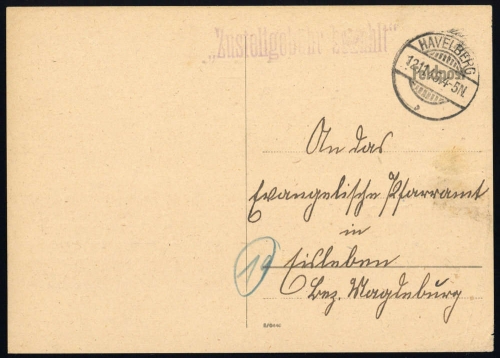 „Zustellgebühr bezahlt"
HAVELBERG
Feldpost
4-5N.
An das
Evangelische Pfarramt
in
Eisleben
Bez. Magdeburg